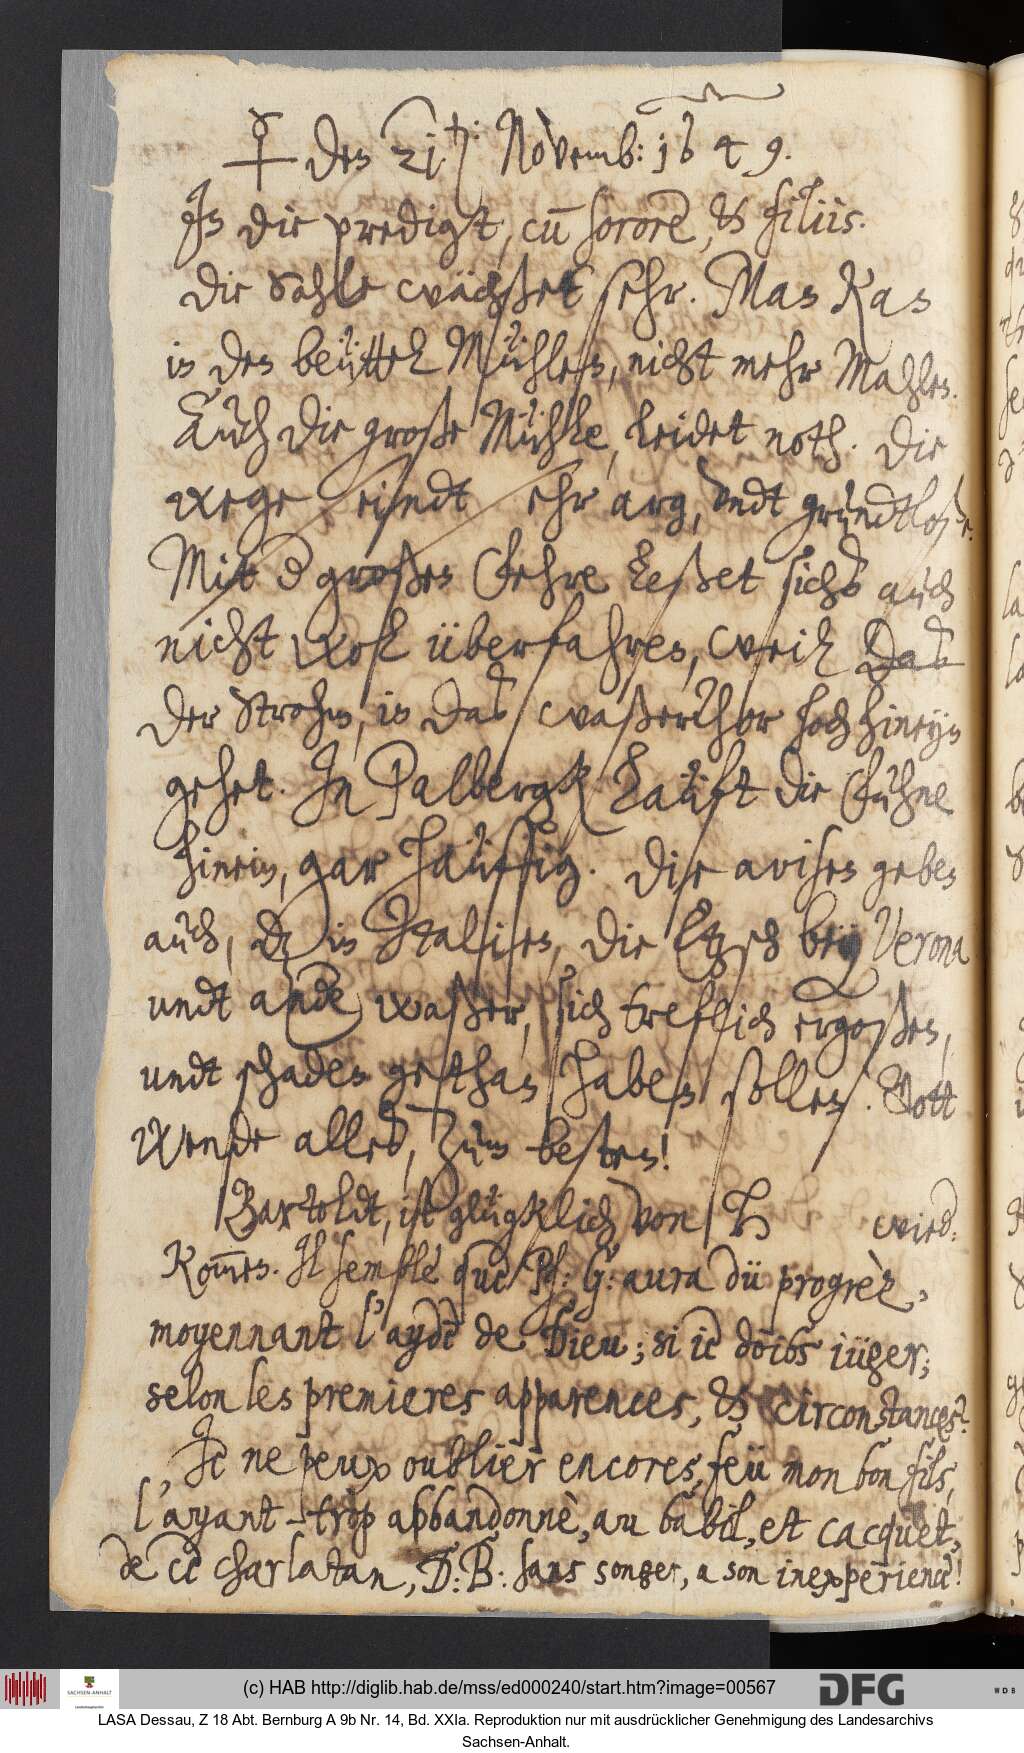 ☿ den 21. Novemb: 1649.
In die predigt, cū sorore, & filiis.
Die Sahle wächßet sehr. Man kan
in der beüttel Mühlen, nicht mehr Mahlen.
Auch die große Mühle, leidet noth. Die
wege seindt sehr arg, undt grundtloß.
Mit d großen Fehre leßet sichs auch
nicht wol überfahren, weil das
der Strohm, in das waßerthor hoch hineyn
gehet. In Palbergk laüft die Fuhne
hinein, gar haüffig. Die avisen geben
auch, dz in Italien, die Etzsch bey Verona
undt ande waßer, sich trefflich ergoßen,
undt schaden gethan haben sollen. Gott
wende alles, zum besten!
Bartoldt, ist glügklich von H wied:
kom̄en. Il semble que Pf: G: aura dü progrès,
moyennant l'ayde de Dieu; si je doibs jüger;
selon les premieres apparences, & circonstances?
Je ne peux oublier encores, feü mon bon fils,
l'ayant trop abbandonnè, au babil, et cacquet,
de ce charlatan, D: B: sans songer, a son inexperience!
(c) HAB http://diglib.hab.de/mss/ed000240/start.htm?image=00567
SACHSEN-ANHALT
DFG
WDB
LASA Dessau, Z 18 Abt. Bernburg A 9b Nr. 14, Bd. XXIa. Reproduktion nur mit ausdrücklicher Genehmigung des Landesarchivs
Sachsen-Anhalt.